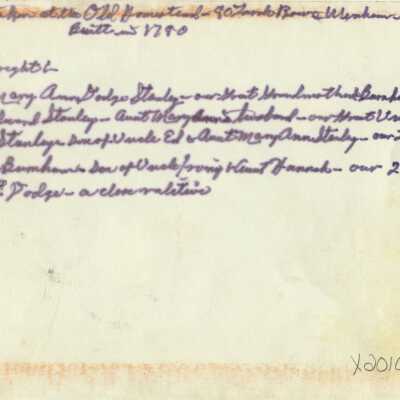 at the Old Homestead - 90 Larch Row, Wenham
Built in 1780
right -
Mary Ann Dodge Stanley - our Great Grandmother Burnham
Stanley - Aunt Mary Ann's husband - our Great Un
Stanley - son of Uncle Ed & Aunt Mary Ann Stanley - our 2
Burnham - son of Uncle Irving & Aunt Hannah - our 2
Dodge - a close relative
X2010